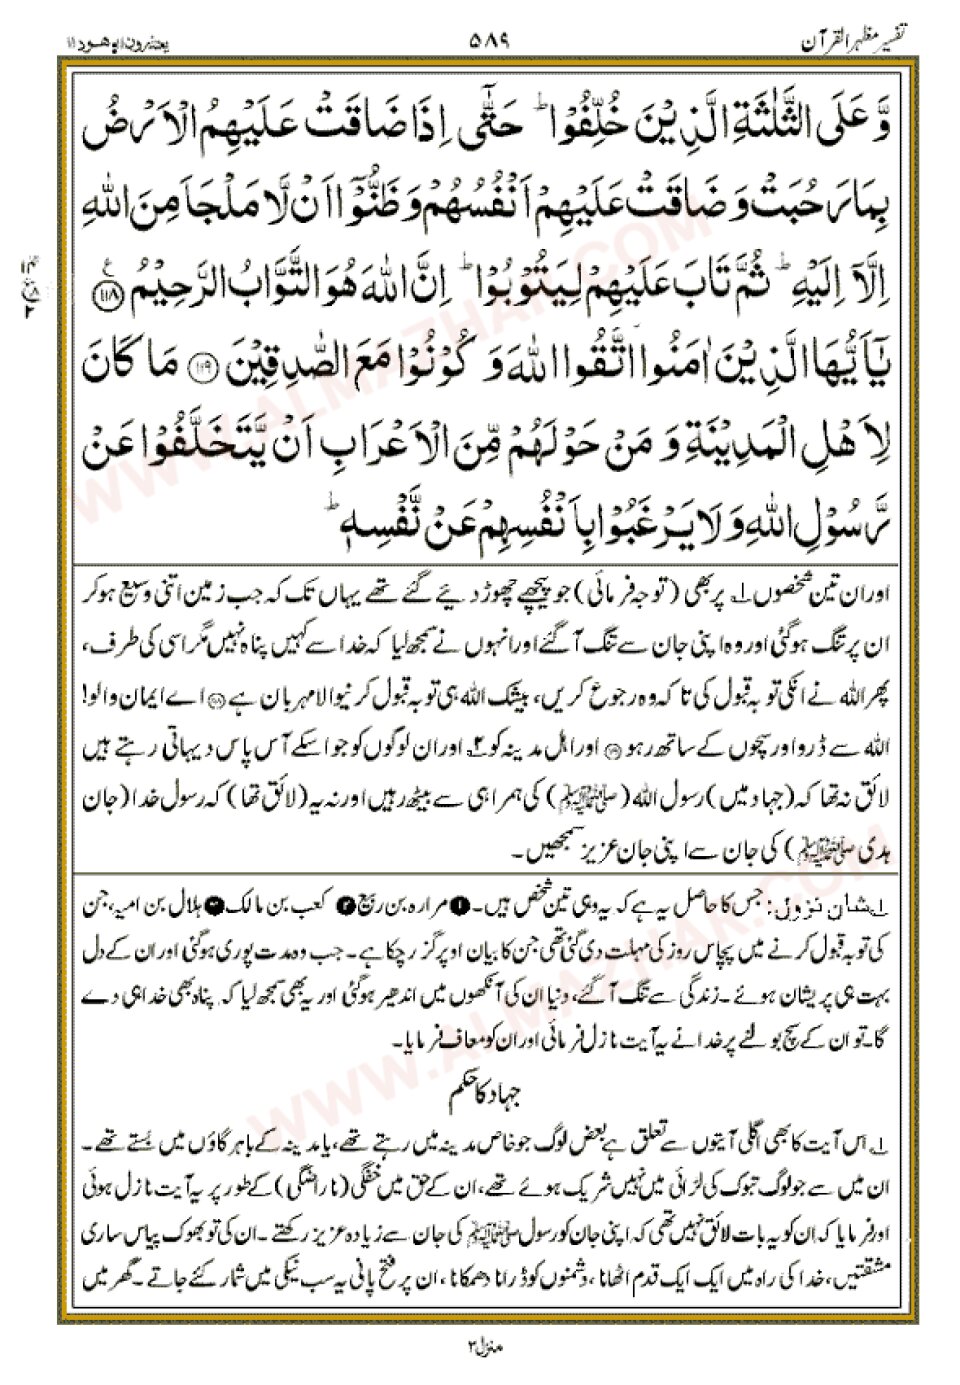 تفسیر مظہر القرآن
۵۸۹
یعتذرون۱۱ ھود۱۱
وَّ عَلَى الثَّلٰثَةِ الَّذِيْنَ خُلِّفُوْا ؕ حَتّٰۤى اِذَا ضَاقَتْ عَلَيْهِمُ الْاَرْضُ
بِمَا رَحُبَتْ وَ ضَاقَتْ عَلَيْهِمْ اَنْفُسُهُمْ وَظَنُّوْۤا اَنْ لَّا مَلْجَاَ مِنَ اللّٰهِ
اِلَّاۤ اِلَيْهِ ؕ ثُمَّ تَابَ عَلَيْهِمْ لِيَتُوْبُوْا ؕ اِنَّ اللّٰهَ هُوَ التَّوَّابُ الرَّحِيْمُ ۱۱۸ ع
يٰۤاَيُّهَا الَّذِيْنَ اٰمَنُوا اتَّقُوا اللّٰهَ وَ كُوْنُوْا مَعَ الصّٰدِقِيْنَ ۱۱۹ مَا كَانَ
لِاَهْلِ الْمَدِيْنَةِ وَ مَنْ حَوْلَهُمْ مِّنَ الْاَعْرَابِ اَنْ يَّتَخَلَّفُوْا عَنْ
رَّسُوْلِ اللّٰهِ وَلَا يَرْغَبُوْا بِاَنْفُسِهِمْ عَنْ نَّفْسِهٖ ؕ
اور ان تین شخصوں ۱ پر بھی (توجہ فرمائی) جو پیچھے چھوڑ دیئے گئے تھے یہاں تک کہ جب زمین اتنی وسیع ہو کر
ان پر تنگ ہوگئی اور وہ اپنی جان سے تنگ آگئے اور انہوں نے سمجھ لیا کہ خدا سے کہیں پناہ نہیں مگر اسی کی طرف،
پھر اللہ نے انکی توبہ قبول کی تاکہ وہ رجوع کریں، بیشک اللہ ہی توبہ قبول کرنیوالا مہربان ہے ۱۱۸ اے ایمان والو!
اللہ سے ڈرو اور سچوں کے ساتھ رہو ۱۱۹ اور اہل مدینہ کو ۲ اور ان لوگوں کو جو اسکے آس پاس دیہاتی رہتے ہیں
لائق نہ تھا کہ (جہاد میں) رسول اللہ (ﷺ) کی ہمراہی سے بیٹھ رہیں اور نہ یہ (لائق تھا) کہ رسول خدا (جان
ہدی ﷺ) کی جان سے اپنی جان عزیز سمجھیں۔
۱ شان نزول: جس کا حاصل یہ ہے کہ یہ وہی تین شخص ہیں۔ ۱ مرارہ بن ربیع ۲ کعب بن مالک ۳ ہلال بن امیہ، جن
کی توبہ قبول کرنے میں پچاس روز کی مہلت دی گئی تھی جن کا بیان اوپر گزر چکا ہے۔ جب وہ مدت پوری ہوگئی اور ان کے دل
بہت ہی پریشان ہوئے۔ زندگی سے تنگ آگئے، دنیا ان کی آنکھوں میں اندھیر ہوگئی اور یہ بھی سمجھ لیا کہ پناہ بھی خدا ہی دے
گا۔ تو ان کے سچ بولنے پر خدا نے یہ آیت نازل فرمائی اور ان کو معاف فرمایا۔
جہاد کا حکم
۱ اس آیت کا بھی اگلی آیتوں سے تعلق ہے بعض لوگ جو خاص مدینہ میں رہتے تھے، یا مدینہ کے باہر گاؤں میں بستے تھے۔
ان میں سے جو لوگ تبوک کی لڑائی میں نہیں شریک ہوئے تھے، ان کے حق میں خفگی (ناراضگی) کے طور پر یہ آیت نازل ہوئی
اور فرمایا کہ ان کو یہ بات لائق نہیں تھی کہ اپنی جان کو رسول ﷺ کی جان سے زیادہ عزیز رکھتے۔ ان کی تو بھوک پیاس ساری
مشقتیں، خدا کی راہ میں ایک ایک قدم اٹھانا، دشمنوں کو ڈرانا دھمکانا، ان پر فتح پانی یہ سب نیکی میں شمار کئے جاتے۔ گھر میں
منزل ۲
WWW.ALMAZHAR.COM
WWW.ALMAZHAR.COM